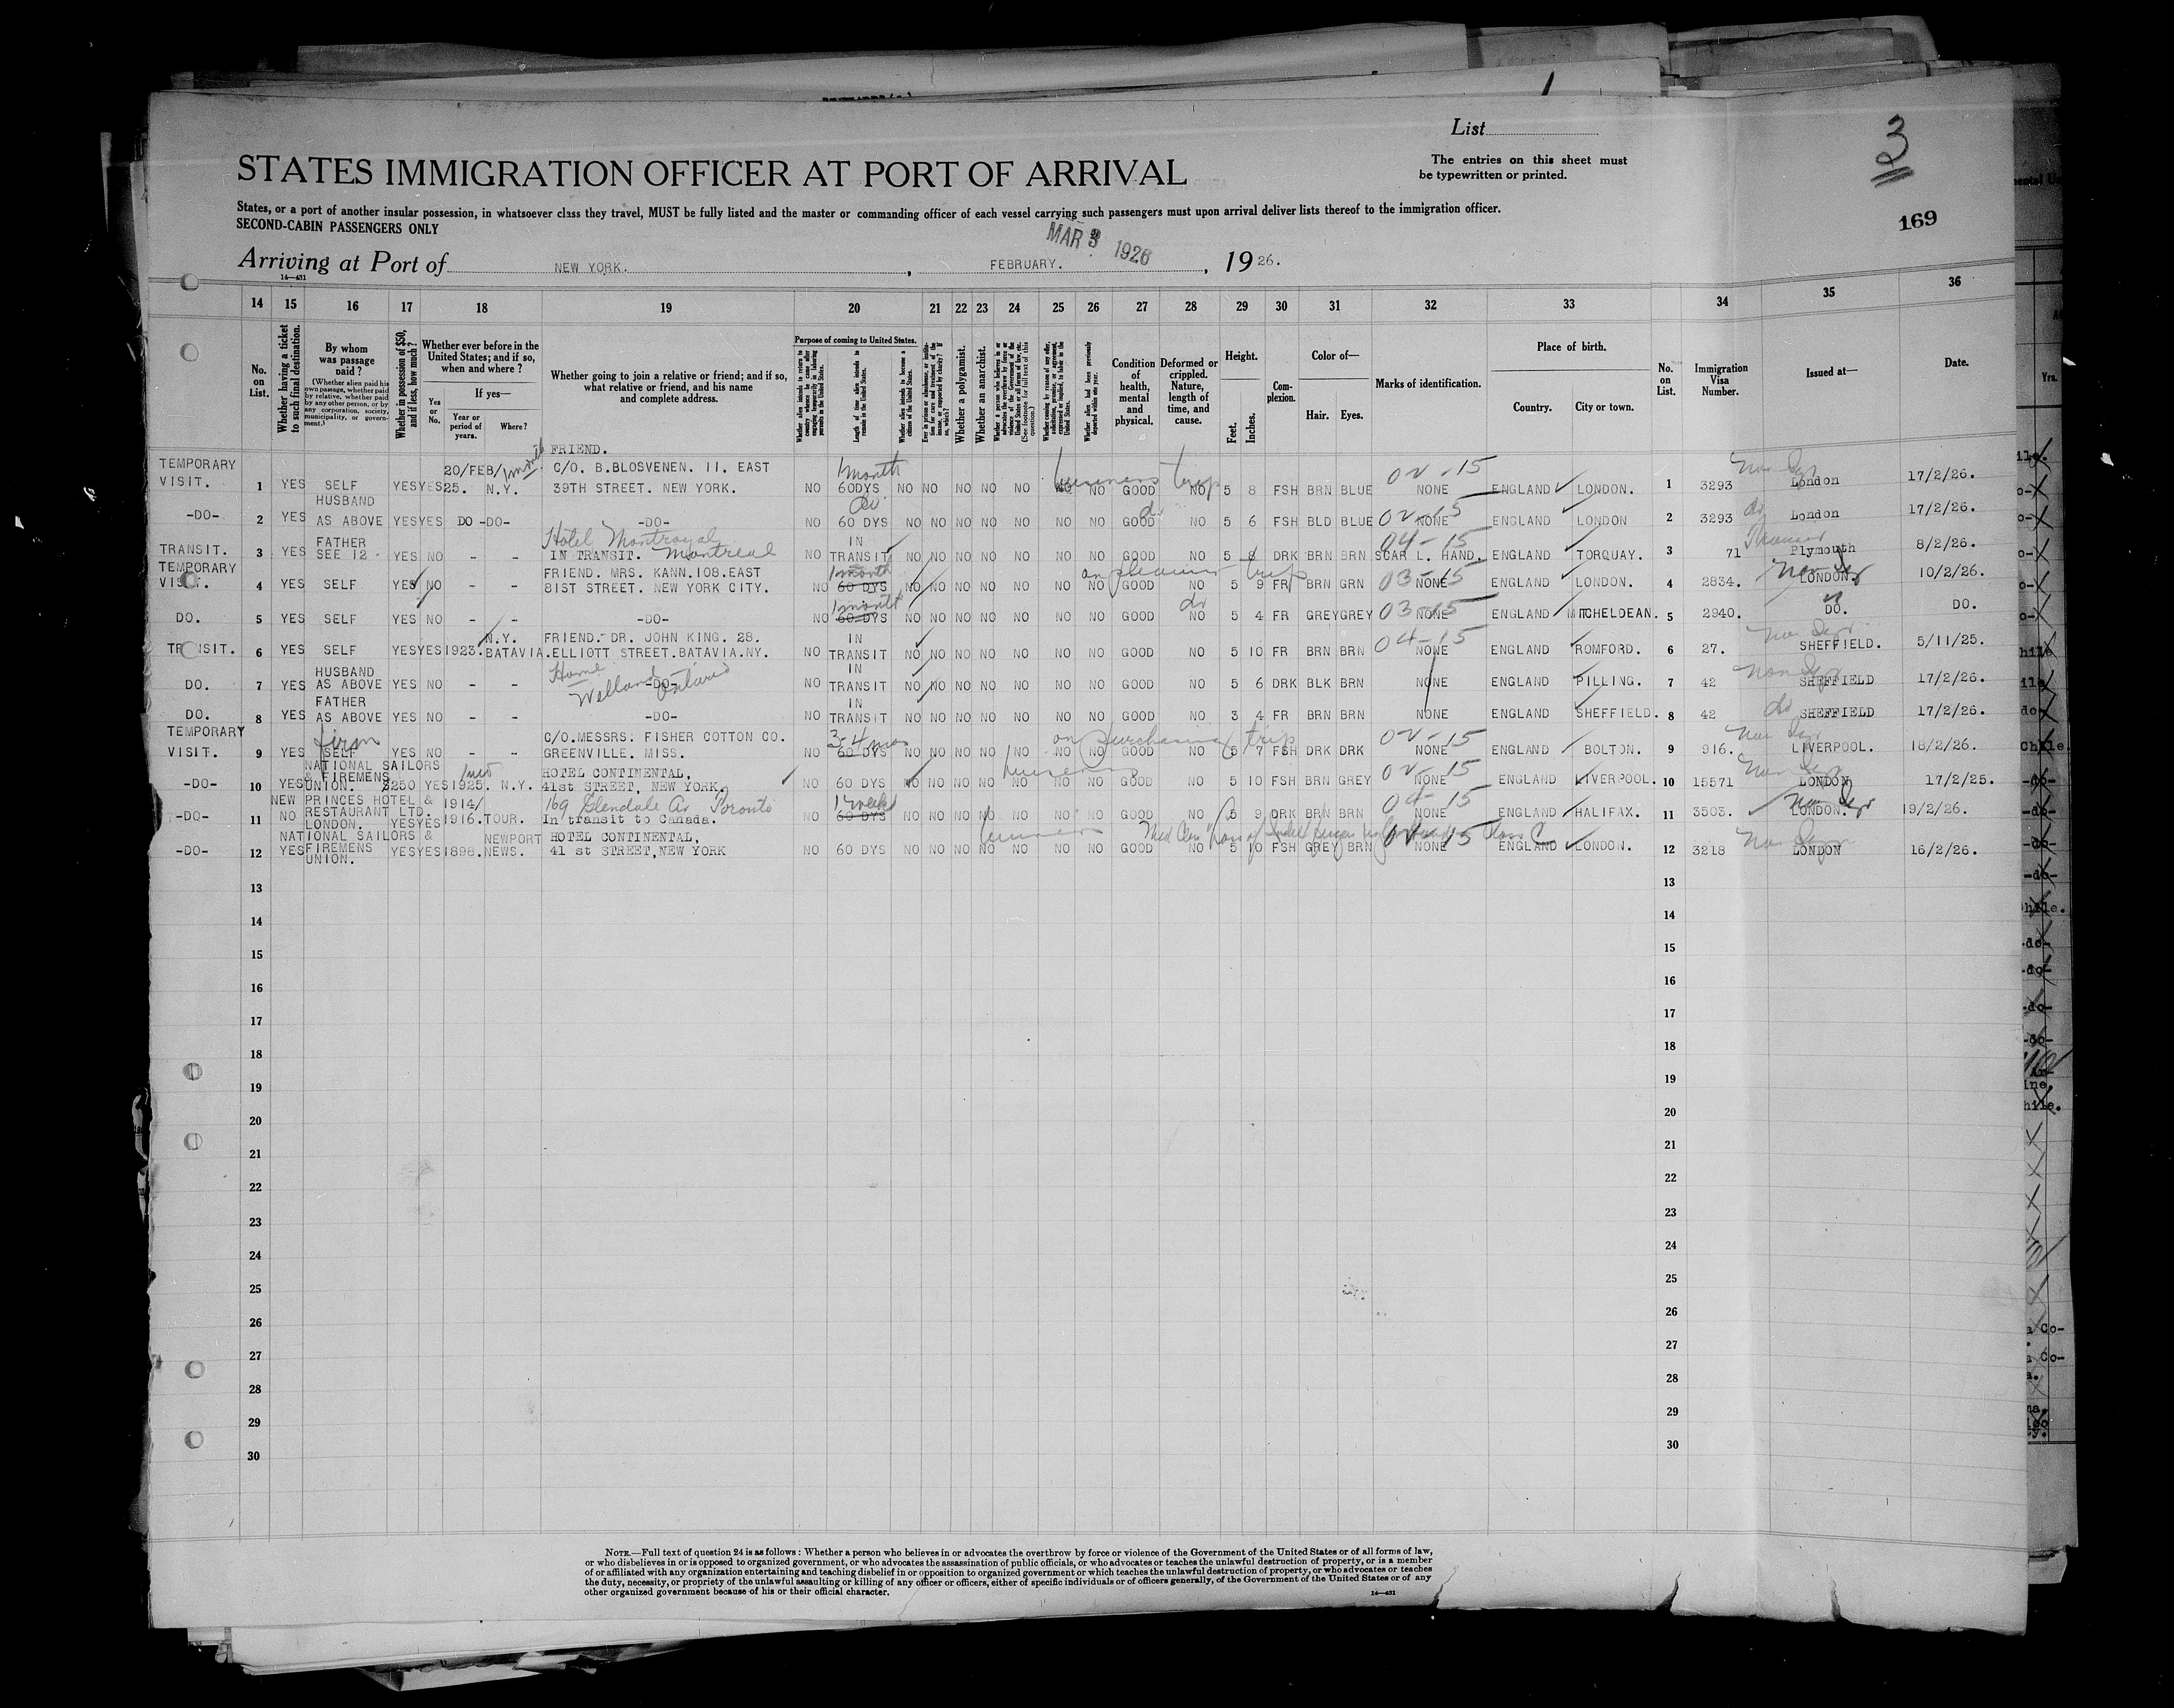 List
The entries on this sheet must
be typewritten or printed.
STATES IMMIGRATION OFFICER AT PORT OF ARRIVAL
States, or a port of another insular possession, in whatsoever class they travel, MUST be fully listed and the master or commanding officer of each vessel carrying such passengers must upon arrival deliver lists thereof to the immigration officer.
SECOND-CABIN PASSENGERS ONLY
169
MAR 3 1926
Arriving at Port of NEW YORK. , FEBRUARY. , 1926.
14—431
14 15 16 17 18 19 20 21 22 23 24 25 26 27 28 29 30 31 32 33 34 35 36
No. on List.
Whether having a ticket to such final destination.
By whom was passage paid?
(Whether alien paid his own passage, whether paid by relative, whether paid by any other person, or by any corporation, society, municipality, or government.)
Whether in possession of $50, and if less, how much?
Whether ever before in the United States; and if so, when and where?
If yes—
Yes or No.
Year or period of years.
Where?
Whether going to join a relative or friend; and if so, what relative or friend, and his name and complete address.
Purpose of coming to United States.
Length of time alien intends to remain in the United States.
Whether a polygamist.
Whether an anarchist.
Condition of health, mental and physical.
Deformed or crippled. Nature, length of time, and cause.
Height.
Feet. Inches.
Complexion.
Color of—
Hair. Eyes.
Marks of identification.
Place of birth.
Country. City or town.
No. on List.
Immigration Visa Number.
Issued at—
Date.
FRIEND.
TEMPORARY 20/FEB/ C/O. B.BLOSVENEN. II. EAST 1 month business trip 02-15
VISIT. 1 YES SELF YES YES 25. N.Y. 39TH STREET. NEW YORK. NO 60DYS NO NO NO NO NO NO NO GOOD NO 5 8 FSH BRN BLUE NONE ENGLAND LONDON. 1 3293 London 17/2/26.
HUSBAND
-DO- 2 YES AS ABOVE YES YES DO -DO- -DO- NO 60 DYS NO NO NO NO NO NO NO GOOD NO 5 6 FSH BLD BLUE 02-15 NONE ENGLAND LONDON 2 3293 London 17/2/26.
FATHER Hotel Montroyal IN 04-15
TRANSIT. 3 YES SEE 12 YES NO - - IN TRANSIT. Montreal NO TRANSIT NO NO NO NO NO NO NO GOOD NO 5 8 DRK BRN BRN SCAR L. HAND. ENGLAND TORQUAY. 3 71 Plymouth 8/2/26.
TEMPORARY FRIEND. MRS. KANN.108.EAST 1 month on pleasure trip
VISIT. 4 YES SELF YES NO - - 81ST STREET. NEW YORK CITY. NO 60 DYS NO NO NO NO NO NO NO GOOD NO 5 9 FR BRN GRN 03-15 NONE ENGLAND LONDON. 4 2834. LONDON. 10/2/26.
1 month do
DO. 5 YES SELF YES NO - - -DO- NO 60 DYS NO NO NO NO NO NO NO GOOD NO 5 4 FR GREY GREY 03-15 NONE ENGLAND MITCHELDEAN. 5 2940. DO. DO.
N.Y. FRIEND.- DR. JOHN KING. 28. IN 04-15
TRANSIT. 6 YES SELF YES YES 1923. BATAVIA. ELLIOTT STREET.BATAVIA.NY. NO TRANSIT NO NO NO NO NO NO NO GOOD NO 5 10 FR BRN BRN NONE ENGLAND ROMFORD. 6 27. SHEFFIELD. 5/11/25.
HUSBAND Home Welland Ontario IN
DO. 7 YES AS ABOVE YES NO - - -DO- NO TRANSIT NO NO NO NO NO NO NO GOOD NO 5 6 DRK BLK BRN NONE ENGLAND PILLING. 7 42 SHEFFIELD 17/2/26.
FATHER IN
DO. 8 YES AS ABOVE YES NO - - -DO- NO TRANSIT NO NO NO NO NO NO NO GOOD NO 3 4 FR BRN BRN NONE ENGLAND SHEFFIELD. 8 42 SHEFFIELD 17/2/26.
TEMPORARY firm C/O.MESSRS. FISHER COTTON CO. 3-4 mos on purchasing trip 02-15
VISIT. 9 YES SELF YES NO - - GREENVILLE. MISS. NO 60 DYS NO NO NO NO NO NO NO GOOD NO 5 7 FSH DRK DRK NONE ENGLAND BOLTON. 9 916. LIVERPOOL. 18/2/26.
NATIONAL SAILORS & FIREMENS HOTEL CONTINENTAL, business 02-15
-DO- 10 YES UNION. $250 YES 1925. N.Y. 41st STREET, NEW YORK. NO 60 DYS NO NO NO NO NO NO NO GOOD NO 5 10 FSH BRN GREY NONE ENGLAND LIVERPOOL. 10 15571 LONDON 17/2/25.
NEW PRINCES HOTEL & RESTAURANT LTD. 1914/ 169 Glendale Av Toronto 1 week 04-15
-DO- 11 NO LONDON. YES YES 1916. TOUR. In transit to Canada. NO 60 DYS NO NO NO NO NO NO NO GOOD NO 5 9 DRK BRN BRN NONE ENGLAND HALIFAX. 11 3503. LONDON. 19/2/26.
NATIONAL SAILORS & NEWPORT HOTEL CONTINENTAL, business
-DO- 12 YES FIREMENS UNION. YES YES 1898. NEWS. 41 st STREET, NEW YORK NO 60 DYS NO NO NO NO NO NO NO GOOD NO 5 10 FSH GREY BRN 02-15 NONE ENGLAND LONDON. 12 3218 LONDON 16/2/26.
13 13
14 14
15 15
16 16
17 17
18 18
19 19
20 20
21 21
22 22
23 23
24 24
25 25
26 26
27 27
28 28
29 29
30 30
NOTE.—Full text of question 24 is as follows: Whether a person who believes in or advocates the overthrow by force or violence of the Government of the United States or of all forms of law,
or who disbelieves in or is opposed to organized government, or who advocates the assassination of public officials, or who advocates or teaches the unlawful destruction of property, or is a member
of or affiliated with any organization entertaining and teaching disbelief in or opposition to organized government or which teaches the unlawful destruction of property, or who advocates or teaches
the duty, necessity, or propriety of the unlawful assaulting or killing of any officer or officers, either of specific individuals or of officers generally, of the Government of the United States or of any
other organized government because of his or their official character.
14—431